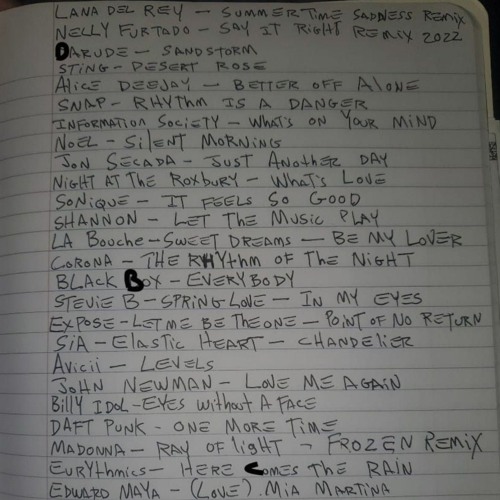 LANA DEL REY – SUMMERTIME SADNESS REMIX
NELLY FURTADO – SAY IT RIGHT REMIX 2022
DARUDE – SANDSTORM
STING – DESERT ROSE
ALICE DEEJAY – BETTER OFF ALONE
SNAP – RHYTHM IS A DANGER
INFORMATION SOCIETY – WHAT'S ON YOUR MIND
NOEL – SILENT MORNING
JON SECADA – JUST ANOTHER DAY
NIGHT AT THE ROXBURY – WHAT'S LOVE
SONIQUE – IT FEELS SO GOOD
SHANNON – LET THE MUSIC PLAY
LA BOUCHE – SWEET DREAMS – BE MY LOVER
CORONA – THE RHYTHM OF THE NIGHT
BLACK BOX – EVERYBODY
STEVIE B – SPRING LOVE – IN MY EYES
EXPOSE – LET ME BE THE ONE – POINT OF NO RETURN
SIA – ELASTIC HEART – CHANDELIER
AVICII – LEVELS
JOHN NEWMAN – LOVE ME AGAIN
BILLY IDOL – EYES WITHOUT A FACE
DAFT PUNK – ONE MORE TIME
MADONNA – RAY OF LIGHT – FROZEN REMIX
EURYTHMICS – HERE COMES THE RAIN
EDWARD MAYA – (LOVE). MIA MARTINA